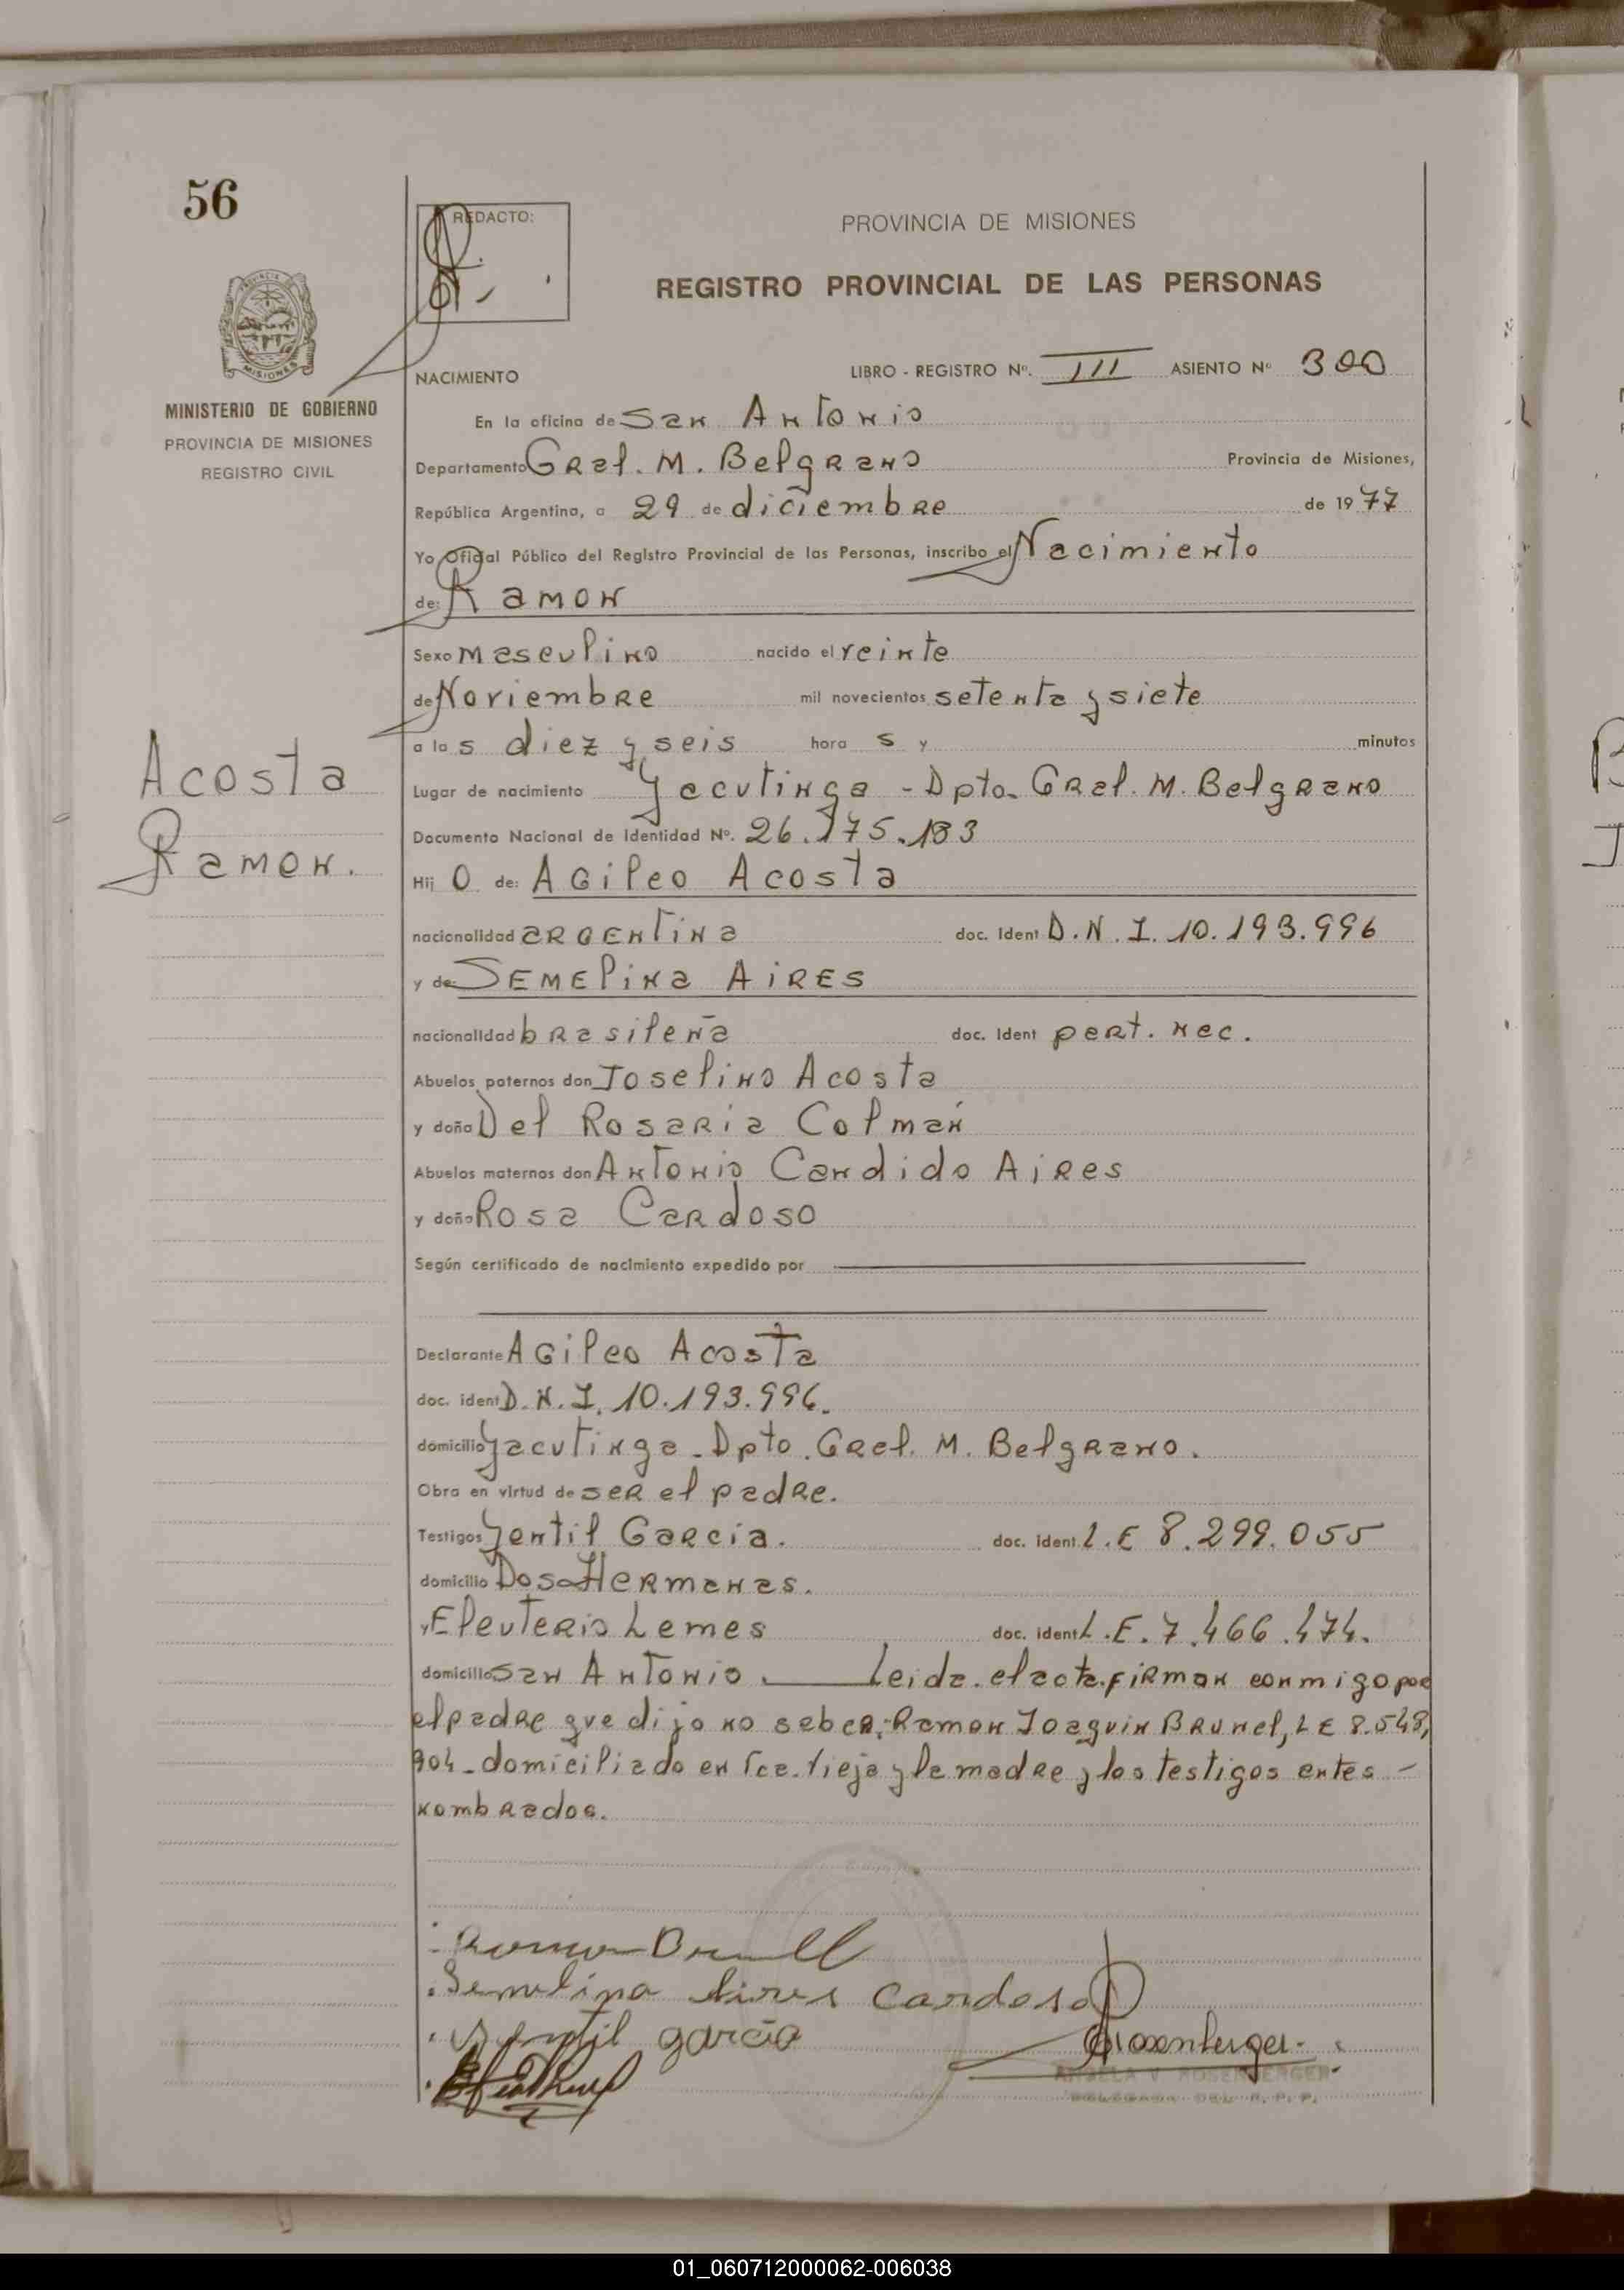 56
REDACTO:
PROVINCIA DE MISIONES
REGISTRO PROVINCIAL DE LAS PERSONAS
MISIONES
MINISTERIO DE GOBIERNO
PROVINCIA DE MISIONES
REGISTRO CIVIL
NACIMIENTO LIBRO - REGISTRO Nº. III ASIENTO Nº 300
En la oficina de San Antonio
Departamento Gral. M. Belgrano Provincia de Misiones,
República Argentina, a 29 de diciembre de 1977
Yo Oficial Público del Registro Provincial de las Personas, inscribo el Nacimiento
de: Ramon
Sexo masculino nacido el veinte
de Noviembre mil novecientos setenta y siete
a las diez y seis hora s y minutos
Acosta
Ramon.
Lugar de nacimiento Yacutinga - Dpto. Gral. M. Belgrano
Documento Nacional de Identidad Nº. 26.175.183
Hij o de: Agileo Acosta
nacionalidad argentina doc. Ident D.N.I. 10.193.996
y de: Semelina Aires
nacionalidad brasileña doc. Ident pert. nec.
Abuelos paternos don Joselino Acosta
y doña Del Rosaria Colmán
Abuelos maternos don Antonio Candido Aires
y doña Rosa Cardoso
Según certificado de nacimiento expedido por
Declarante Agileo Acosta
doc. ident D.N.I. 10.193.996.
domicilio Yacutinga - Dpto. Gral. M. Belgrano.
Obra en virtud de ser el padre.
Testigos Gentil Garcia. doc. ident. L.E 8.299.055
domicilio Dos Hermanas.
y Eleuterio Lemes doc. ident L.E. 7.466.474.
domicilio San Antonio. Leida el acta firman conmigo por
el padre que dijo no saber, Ramon Joaquin Brunel, L E 8.548,
904 - domiciliado en Fca. Vieja y la madre y los testigos antes -
nombrados.
Ramon Brunell
Semelina Aires Cardoso
Gentil garcia
Rosenberger.
ANGELA V. ROSENBERGER
DELEGADA DEL R. P. P.
01_060712000062-006038